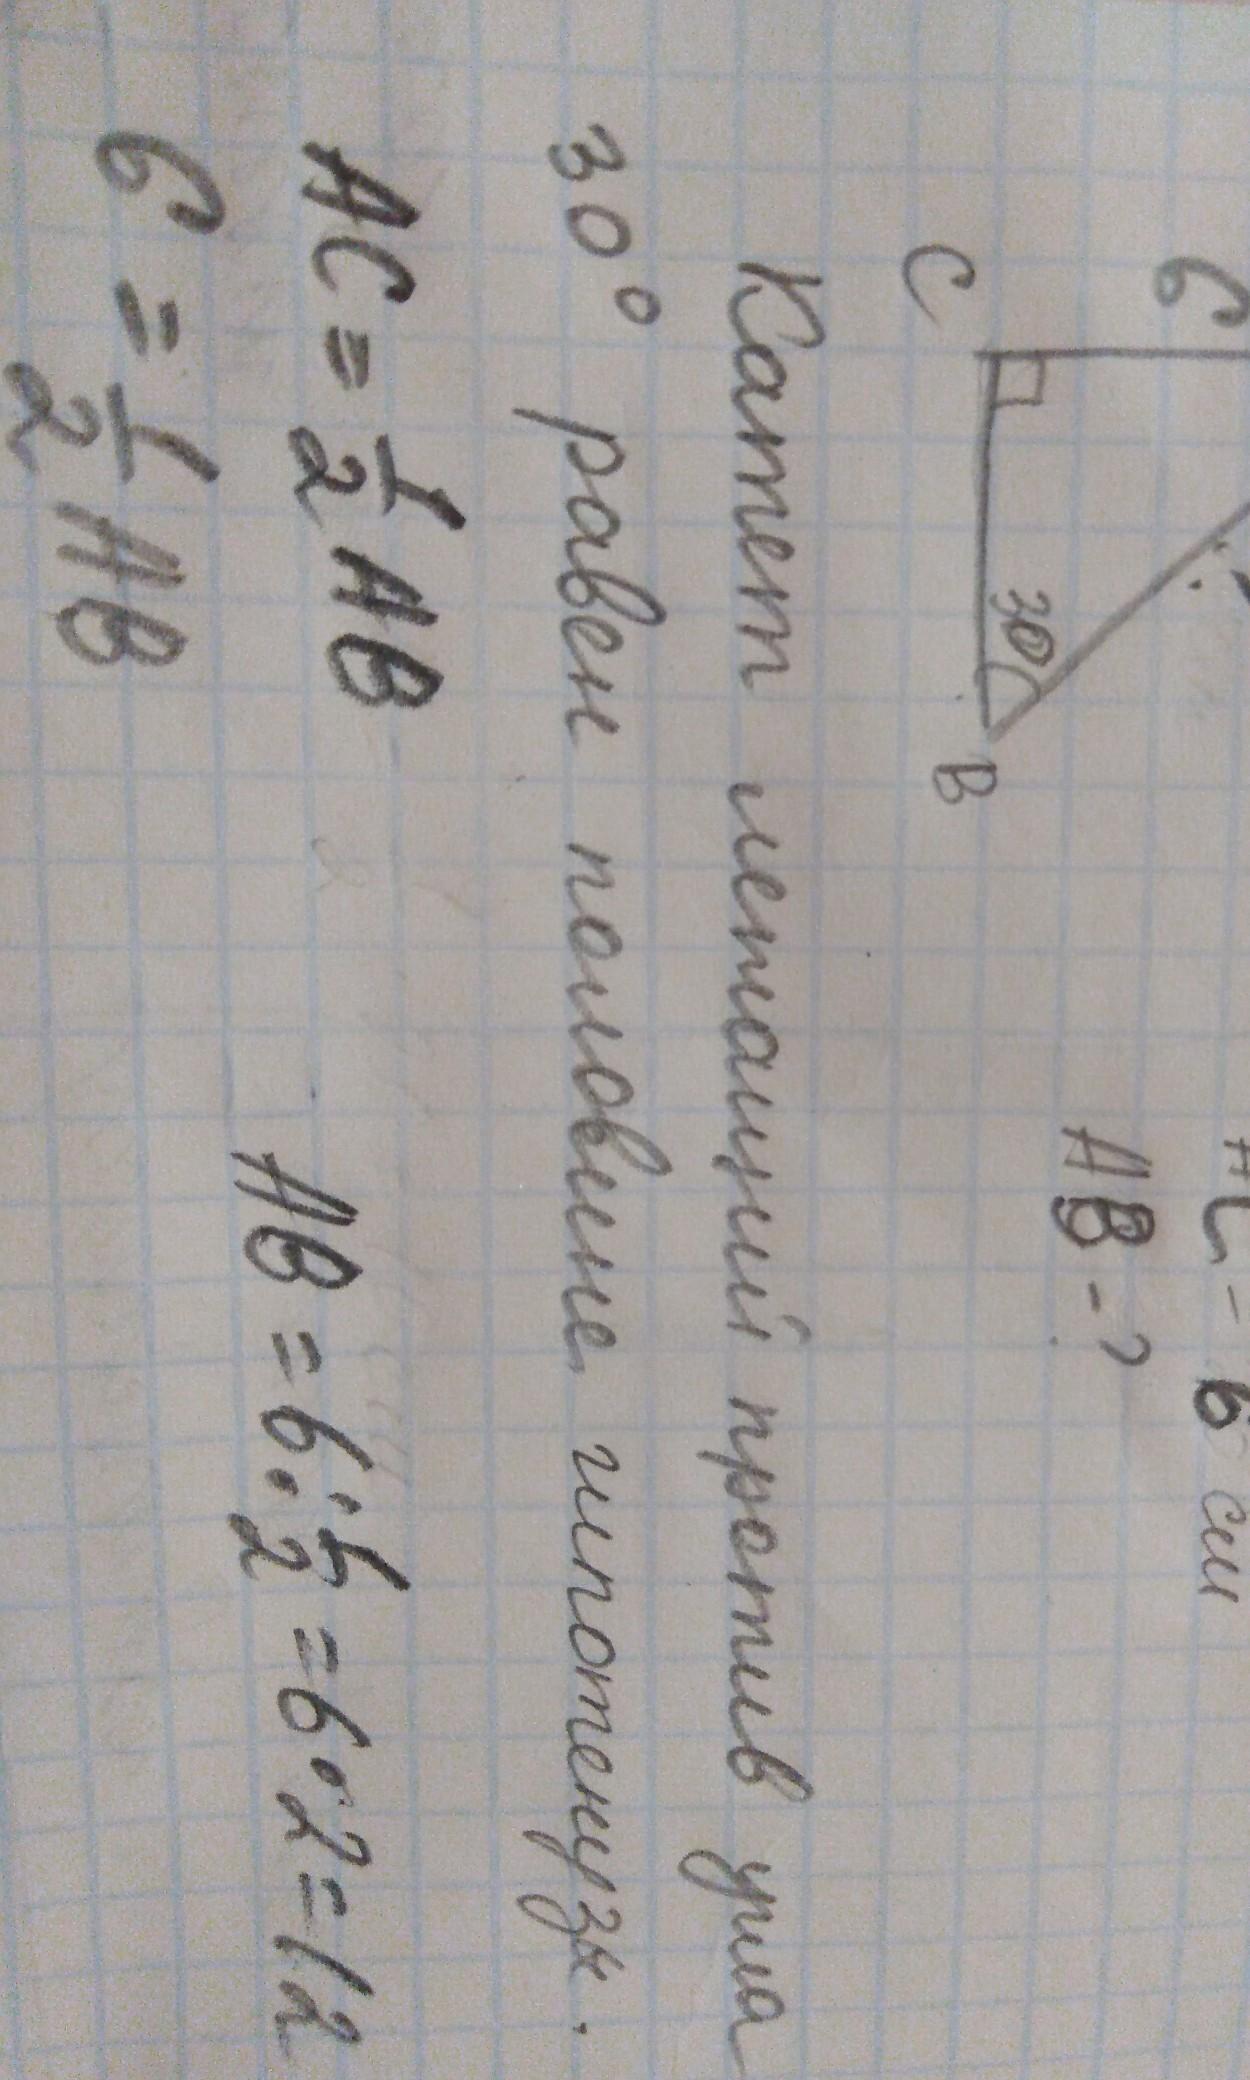 AC = 6 см
6
AB - ?
30
C
B
Катет лежащий против угла
30° равен половине гипотенузы.
AC = 1/2 AB
AB = 6 : 1/2 = 6 · 2 = 12
6 = 1/2 AB